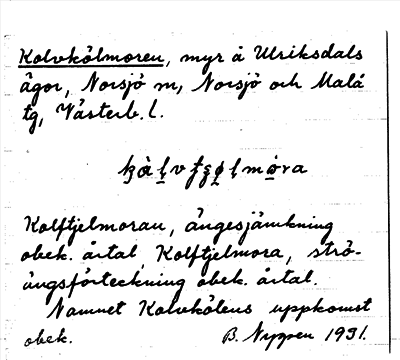 Kolvkölmoren, myr å Ulriksdals
ägor, Norsjö sn, Norsjö och Malå
tg, Västerb. l.
Kolftjelmoran, ängesjämkning
obek. årtal Kolftjelmora, strö-
ängsförteckning obek. årtal.
Namnet Kolvkölens uppkomst
obek. B. Nyppen 1931.